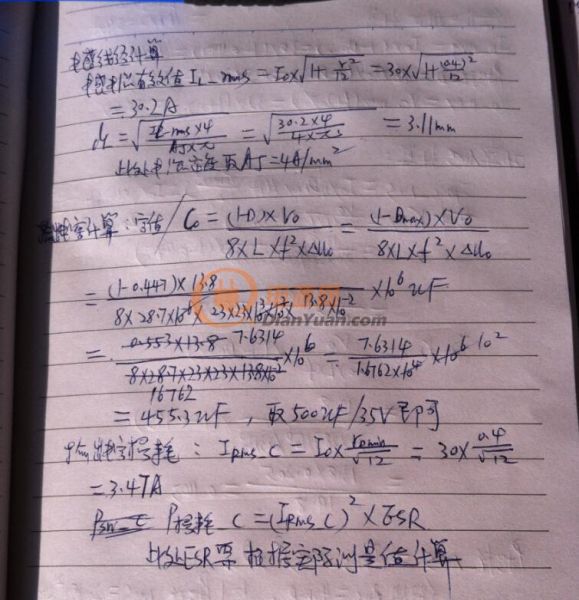 电感线径计算
电感电流有效值 IL-rms = Io×√(1+r²/12) = 30×√(1+(0.4)²/12)
= 30.2A
dL = √(IL-rms×4/(AJ×π)) = √(30.2×4/(4×π)) = 3.11mm
此处电流密度取AJ=4A/mm²
电容计算：容值/Co = (1-D)×Vo/(8×L×f²×ΔUo) = (1-Dmax)×Vo/(8×L×f²×ΔUo)
= (1-0.447)×13.8/(8×28.7×10⁻⁶×23×23×10³×10³×13.8×10⁻²)×10⁶uF
DianYuan.com
= 0.553×13.8 7.6314/(8×28.7×23×23×13.8×10⁻²)×10⁶ = 7.6314/(1.6762×10⁴)×10⁶ 10²
16762
= 455.3uF，取500uF/35V即可
输出电容损耗：IRMS_C = Io×rmin/√12 = 30×0.4/√12
= 3.47A
P损耗 C=(IRMS C)²×ESR
此处ESR要根据实际测量值计算